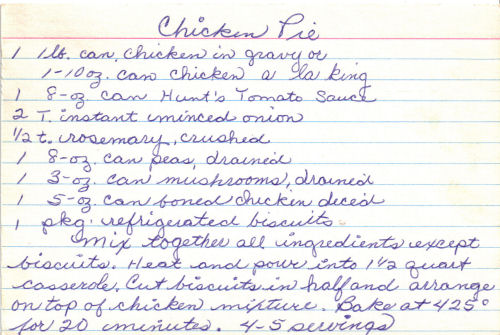 Chicken Pie
1 1 lb. can chicken in gravy or
1-10 oz. can chicken a la king
1 8-oz. can Hunt's Tomato Sauce
2 T. instant minced onion
1/2 t. rosemary, crushed
1 8-oz. can peas, drained
1 3-oz. can mushrooms, drained
1 5-oz. can boned chicken diced
1 pkg. refrigerated biscuits
Mix together all ingredients except
biscuits. Heat and pour into 1 1/2 quart
casserole. Cut biscuits in half and arrange
on top of chicken mixture. Bake at 425°
for 20 minutes. 4-5 servings